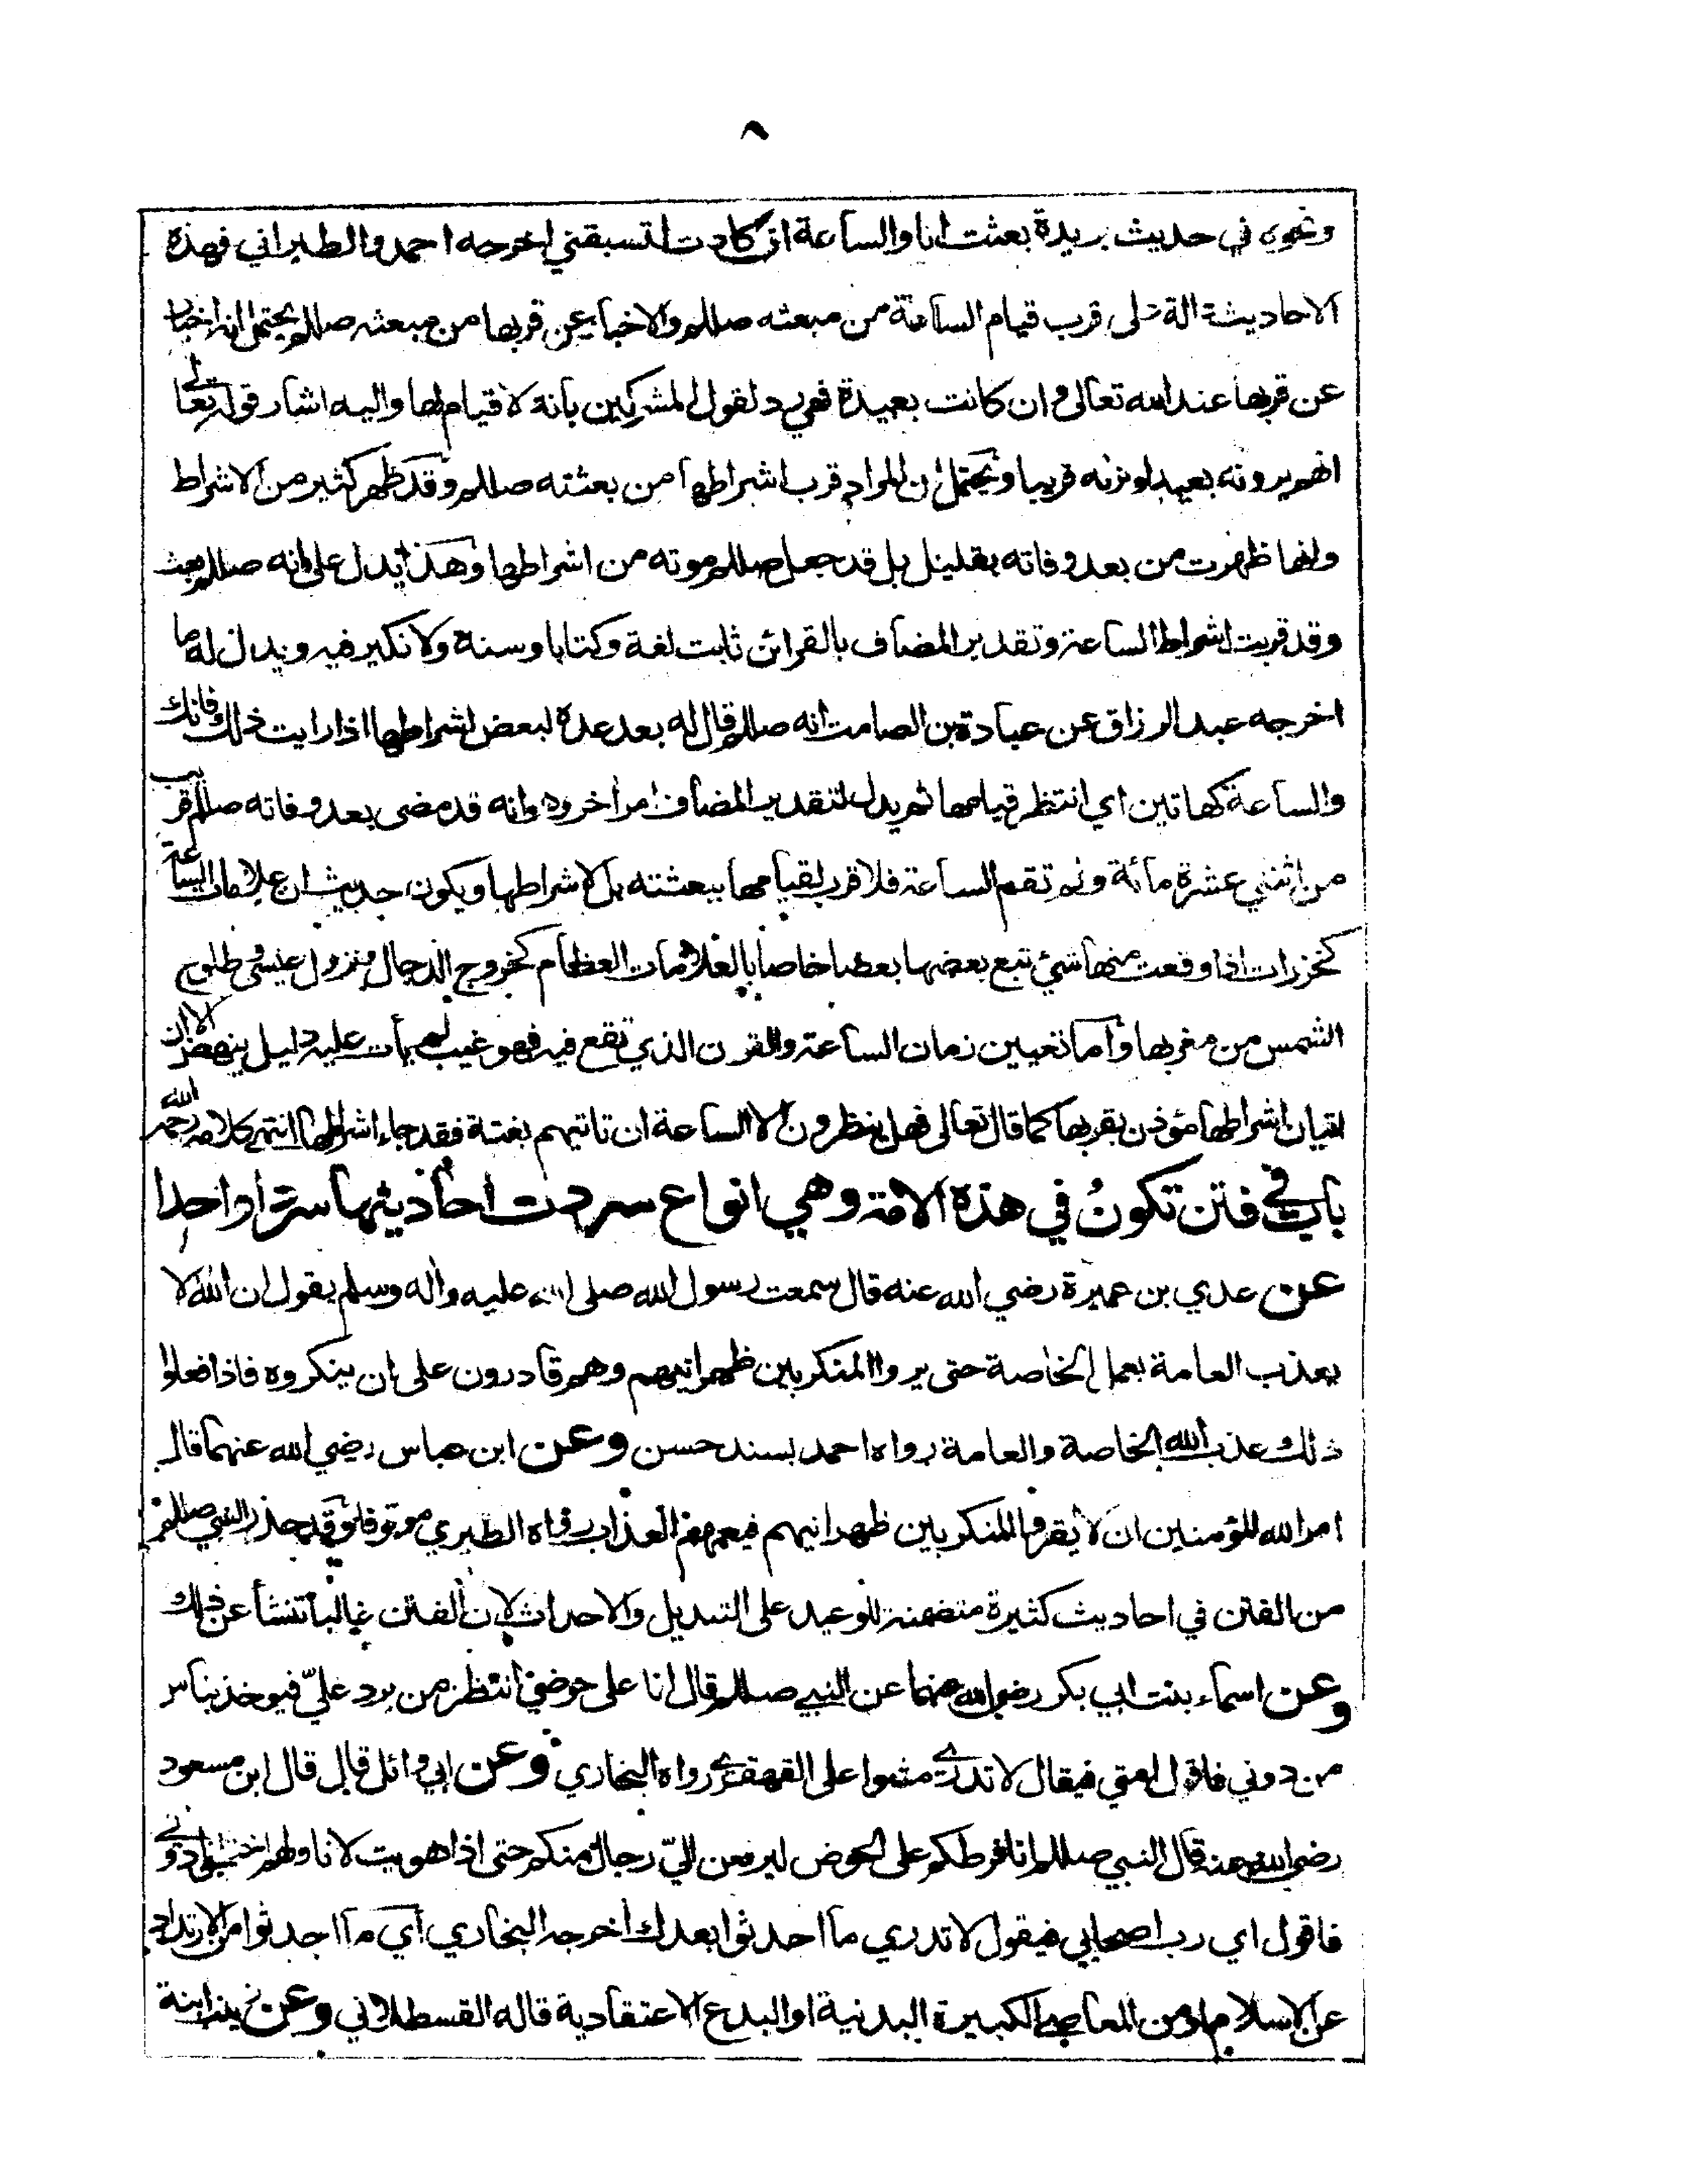 ٨
ونحوه في حديث بريدة بعثت انا والساعة ان كادت لتسبقني اخرجه احمد والطبراني فهذه
الاحاديث دالة على قرب قيام الساعة من مبعثه صللم والاخبار عن قربها من مبعثه صللم يحتمل انه اخبار
عن قربها عند الله تعالى وان كانت بعيدة فهي رد لقول المشركين بانه لا قيام لها واليه اشار قوله تعالى
انهم يرونه بعيدا ونراه قريبا ويحتمل ان المراد قرب اشراطها من بعثته صللم وقد ظهر كثير من الاشراط
وانها ظهرت من بعد وفاته بقليل بل قد جعل صللم موته من اشراطها وهذا يدل على انه صللم بعث
وقد قربت اشراط الساعة وتقدير المضاف بالقرائن ثابت لغة وكتابا وسنة ولا نكير فيه ويدل له ما
اخرجه عبد الرزاق عن عبادة بن الصامت انه صللم قال له بعد عده لبعض اشراطها اذا رايت ذلك فانك
والساعة كهاتين اي انتظر قيامها ثم يدل لتقدير المضاف امر اخر وهو انه قد مضى بعد وفاته صللم قريب
من اثني عشرة مائة ولم تقم الساعة فلا قرب لقيامها ببعثته بل لاشراطها ويكون حديث ان علامات الساعة
كخزرات اذا وقعت منها شئ تبع بعضها بعضا خاصا بالعلامات العظام كخروج الدجال ونزول عيسى وطلوع
الشمس من مغربها واما تعيين زمان الساعة والقرن الذي تقع فيه فهو غيب لم يأت عليه دليل ينهض الا ان
اتيان اشراطها مؤذن بقربها كما قال تعالى فهل ينظرون الا الساعة ان تاتيهم بغتة فقد جاء اشراطها انتهى كلامه رحمه الله
باب في فتن تكون في هذه الامة وهي انواع سردت احاديثها سردا واحدا
عن عدي بن عميرة رضي الله عنه قال سمعت رسول الله صلى الله عليه واله وسلم يقول ان الله لا
يعذب العامة بعمل الخاصة حتى يروا المنكر بين ظهرانيهم وهم قادرون على ان ينكروه فاذا فعلوا
ذلك عذب الله الخاصة والعامة رواه احمد بسند حسن وعن ابن عباس رضي الله عنهما قال
امر الله المؤمنين ان لا يقروا المنكر بين ظهرانيهم فيعمهم العذاب رواه الطبري موقوفا وقد حذر النبي صللم
من الفتن في احاديث كثيرة متضمنة للوعيد على التبديل والاحداث لان الفتن غالبا تنشأ عن ذلك
وعن اسماء بنت ابي بكر رضي الله عنهما عن النبي صللم قال انا على حوضي انتظر من يرد علي فيوخذ بناس
من دوني فاقول امتي فيقال لا تدري مشوا على القهقرى رواه البخاري وعن ابي وائل قال قال ابن مسعود
رضي الله عنه قال النبي صللم انا فرطكم على الحوض ليرفعن الي رجال منكم حتى اذا اهويت لاناولهم اختلجوا دوني
فاقول اي رب اصحابي فيقول لا تدري ما احدثوا بعدك اخرجه البخاري اي ما احدثوا من الارتداد
عن الاسلام او من المعاصي الكبيرة البدنية او البدع الاعتقادية قاله القسطلاني وعن زينب ابنة